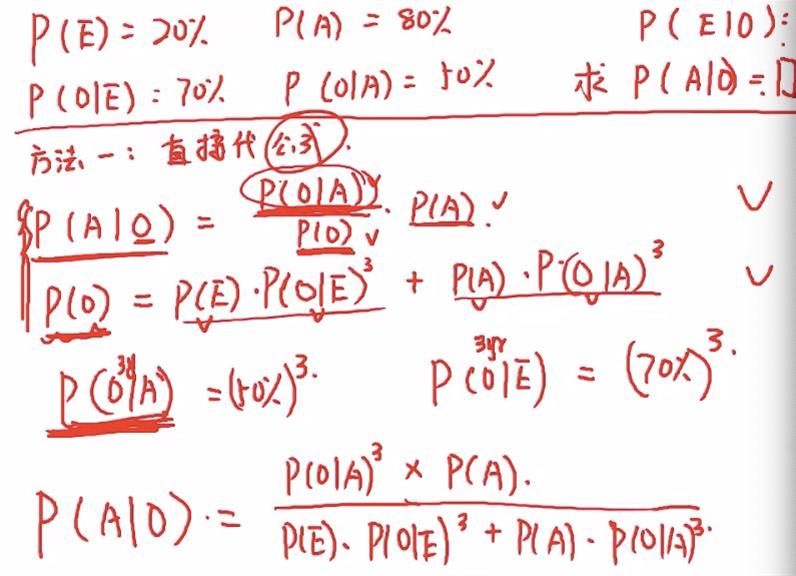 P(E) = 20% P(A) = 80% P(E|O):
P(O|E) = 70% P(O|A) = 50% 求 P(A|O) =
方法一: 直接代公式.
P(A|O) = P(O|A) / P(O) · P(A).
P(O) = P(E)·P(O|E)³ + P(A)·P(O|A)³
P(O³ʸʳ|A) = (50%)³. P(O³ʸʳ|E) = (70%)³.
P(A|O) = P(O|A)³ × P(A). / P(E)·P(O|E)³ + P(A)·P(O|A)³.